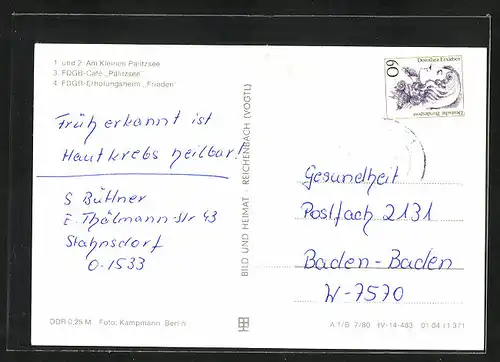 1. und 2. Am Kleinen Pälitzsee
3. FDGB-Café „Pälitzsee"
4. FDGB-Erholungsheim „Frieden"
Früh erkannt ist
Hautkrebs heilbar!
S Büttner
E. Thälmann-Str 43
Stahnsdorf
O-1533
DDR 0,25 M Foto: Kampmann, Berlin
BILD UND HEIMAT · REICHENBACH (VOGTL)
60
Dorothea Erxleben
Deutsche Bundespost
Gesundheit
Postfach 2131
Baden-Baden
W-7570
A 1/B 7/80 IV-14-483 01 04 11 371